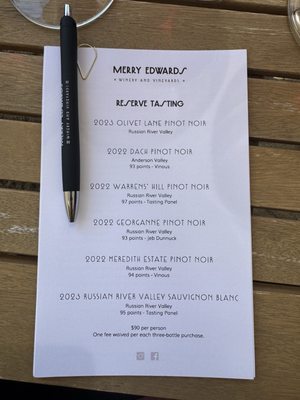 MERRY EDWARDS
WINERY AND VINEYARDS
RESERVE TASTING
2023 OLIVET LANE PINOT NOIR
Russian River Valley
2022 DACH PINOT NOIR
Anderson Valley
93 points - Vinous
2022 WARRENS' HILL PINOT NOIR
Russian River Valley
97 points - Tasting Panel
2022 GEORGANNE PINOT NOIR
Russian River Valley
93 points - Jeb Dunnuck
2022 MEREDITH ESTATE PINOT NOIR
Russian River Valley
94 points - Vinous
2023 RUSSIAN RIVER VALLEY SAUVIGNON BLANC
Russian River Valley
95 points - Tasting Panel
$90 per person
One fee waived per each three-bottle purchase.